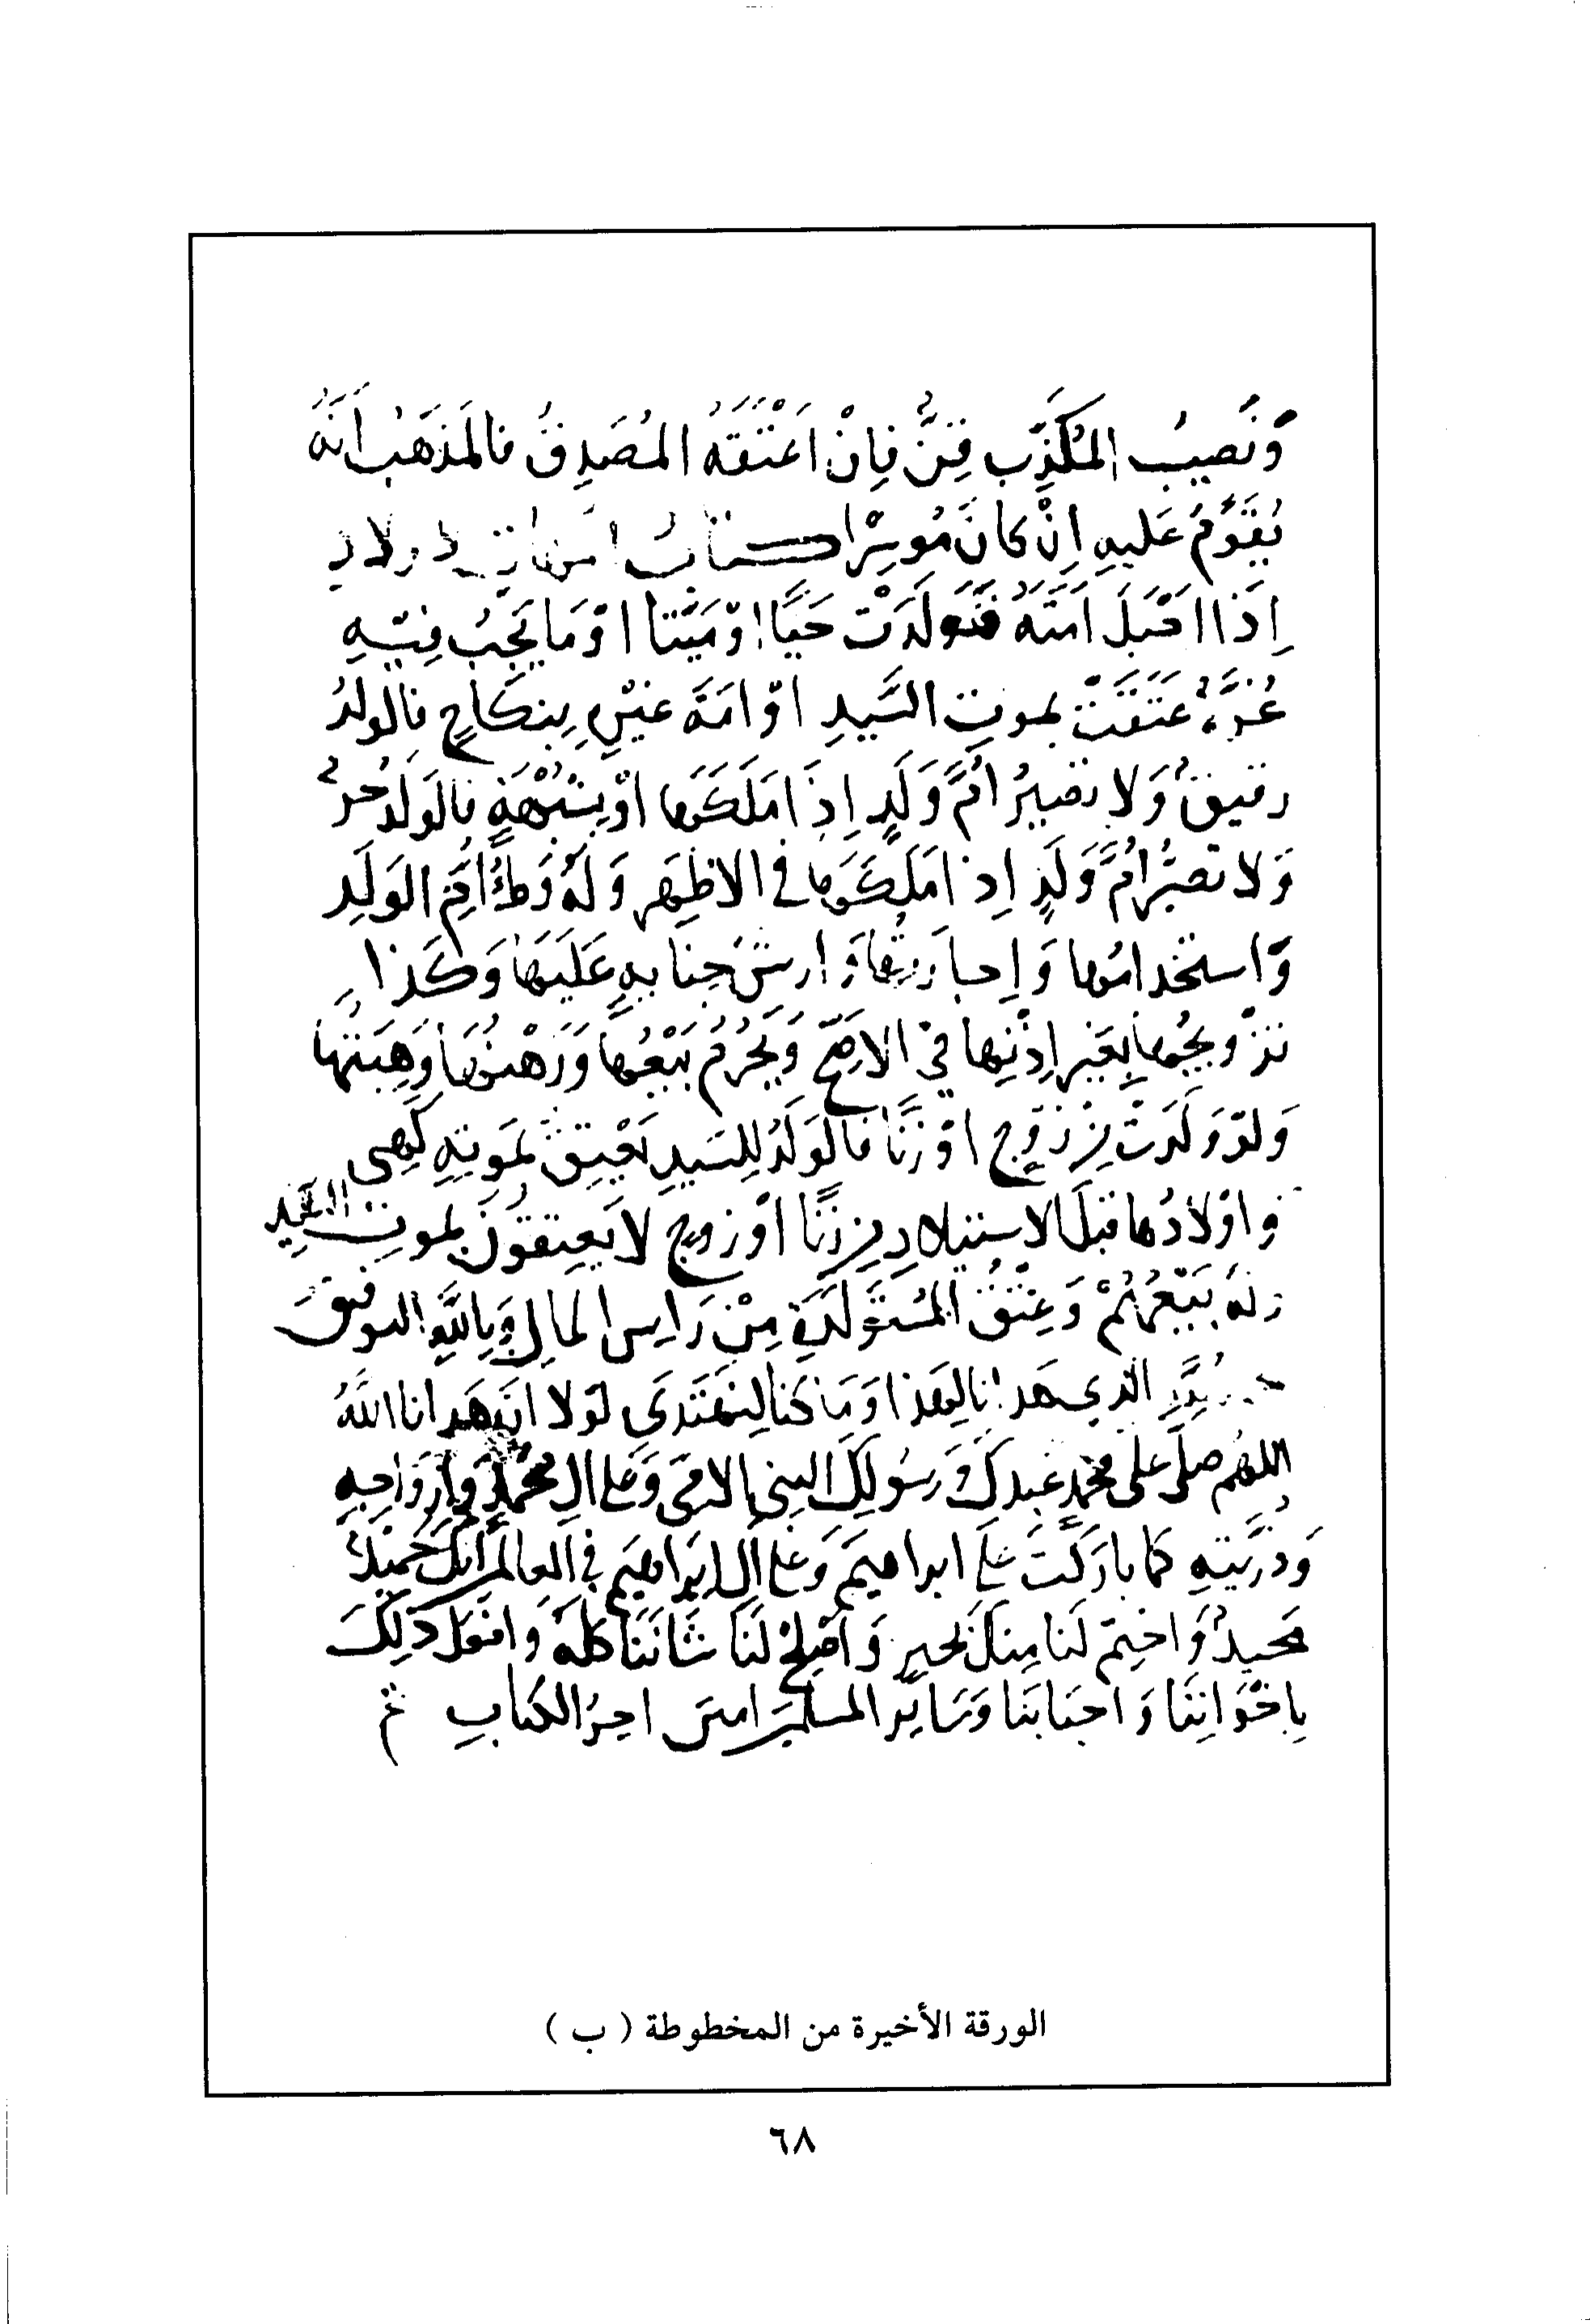 وَنَصِيبُ المُكَذِّبِ قِنٌّ فَإِنْ اَعْتَقَهُ المُصَدِقُ فالمَذهَبُ اَنَّهُ
يُقَوَّمُ عَليهِ اِنْ كانَ مُوسِرًا كتابُ امهات الاولاد
اِذَا احَبَلَ اَمَتَهُ فَوَلَدَتْ حَيًّا اوْ مَيِّتا اوْ مَا يَجِبُ فِيْهِ
غُرَّةٌ عَتَقَتْ بموتِ السَّيدِ اوْ امَةَ غيْرِهِ بِنكاحٍ فالولدُ
رقيقٌ وَلا تصِيرُ اُمَّ وَلَدٍ اِذَا مَلَكَها اوْ بِشُبْهَةٍ فالوَلدُ حرٌّ
وَلا تصيْرُ اُمَّ وَلَدٍ اِذا مَلَكَها في الاظهَرِ وَلَهُ وَطْءُ اُمِّ الوَلَدِ
وَاستخدامُها وَاِجارَتُها وَارشُ جِنايةٍ عَلَيهَا وَكَذا
تزْويجُها بِغَيْرِ اِذْنِها فيْ الاصَحِّ وَيَحْرُمُ بَيْعُها وَرَهْنُها وَهِبَتُها
وَلوْ وَلَدَتْ مِنْ زَوْجٍ اوْ زِنًا فالوَلَدُ لِلسَيدِ يَعْتِقُ بمَوتِهِ كَهِي
وَاوْلادُها قبْلَ الاستيلادِ مِنْ زِنًا اوْ زوجٍ لا يَعتِقُونَ بموتِ السَّيِد
وَلَهُ بَيْعُهُمْ وَعِتْقُ المُستَوْلَدَةِ مِنْ رَاسِ المالِ وَبِاللَّهِ التوفيق
الحمدُ للهِ الَّذي هَدانا لِهَذا وَمَا كنا لِنهْتَدىَ لوْلا انْ هَدانا اللهُ
اللهُم صلِّ على محمدٍ عَبدكَ وَرَسُولِكَ النبيِّ الامّى وَعلى الِ محمَّدٍ وَازوَاجِهِ
وَذُرّيَتِهِ كما بارَكْتَ على ابراهيمَ وَعلى الِ ابراهيمَ في العالمين انكَ حَمِيدٌ
مجيدٌ وَاختِم لَنا مِنكَ بخيرٍ وَاصْلِحْ لَنا شَانَنَا كلَهُ وَافعَل ذلِكَ
بِاخْوَانِنَا وَاحبَابِنَا وَسَايِر المسلمينَ امين اخِرُ الكتابِ تم
الورقة الأخيرة من المخطوطة ( ب )
٦٨